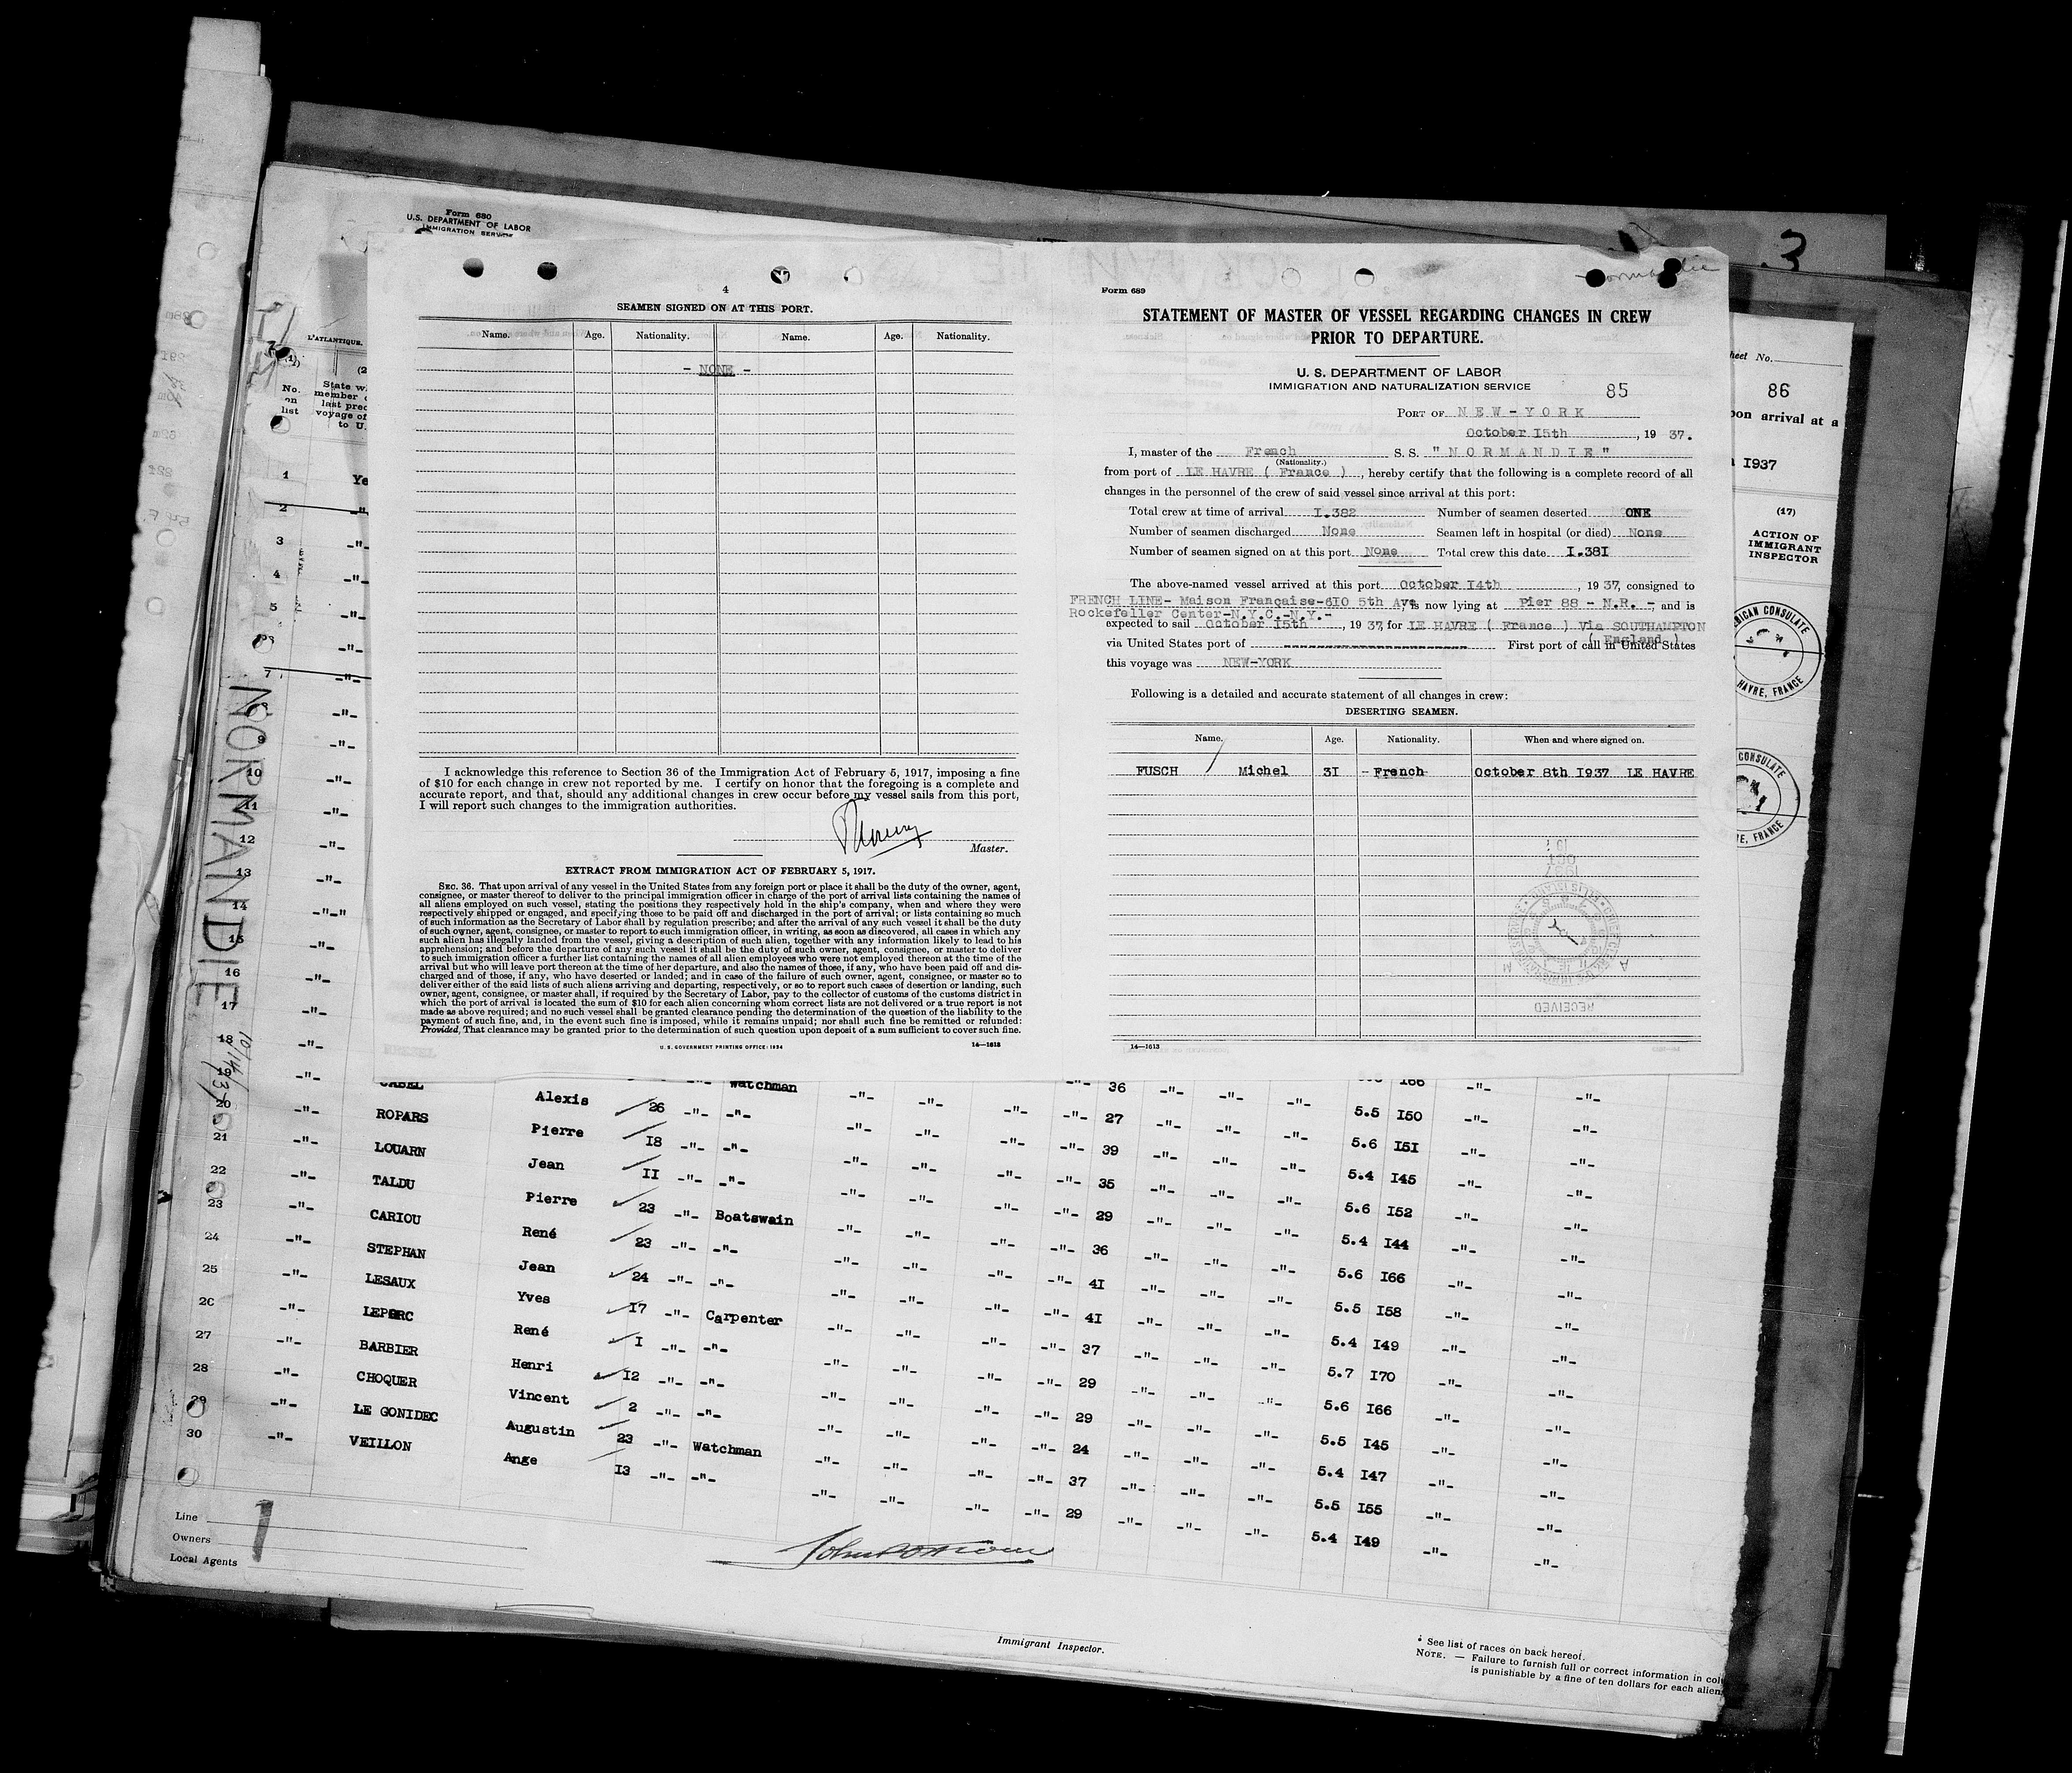 Form 680
U.S. DEPARTMENT OF LABOR
IMMIGRATION SERVICE
4
SEAMEN SIGNED ON AT THIS PORT.
Name. Age. Nationality. Name. Age. Nationality.
- NONE -
I acknowledge this reference to Section 36 of the Immigration Act of February 5, 1917, imposing a fine
of $10 for each change in crew not reported by me. I certify on honor that the foregoing is a complete and
accurate report, and that, should any additional changes in crew occur before my vessel sails from this port,
I will report such changes to the immigration authorities.
Master.
EXTRACT FROM IMMIGRATION ACT OF FEBRUARY 5, 1917.
SEC. 36. That upon arrival of any vessel in the United States from any foreign port or place it shall be the duty of the owner, agent,
consignee, or master thereof to deliver to the principal immigration officer in charge of the port of arrival lists containing the names of
all aliens employed on such vessel, stating the positions they respectively hold in the ship's company, when and where they were
respectively shipped or engaged, and specifying those to be paid off and discharged in the port of arrival; or lists containing so much
of such information as the Secretary of Labor shall by regulation prescribe; and after the arrival of any such vessel it shall be the duty
of such owner, agent, consignee, or master to report to such immigration officer, in writing, as soon as discovered, all cases in which any
such alien has illegally landed from the vessel, giving a description of such alien, together with any information likely to lead to his
apprehension; and before the departure of any such vessel it shall be the duty of such owner, agent, consignee, or master to deliver
to such immigration officer a further list containing the names of all alien employees who were not employed thereon at the time of the
arrival but who will leave port thereon at the time of her departure, and also the names of those, if any, who have been paid off and dis-
charged and of those, if any, who have deserted or landed; and in case of the failure of such owner, agent, consignee, or master so to
deliver either of the said lists of such aliens arriving and departing, respectively, or so to report such cases of desertion or landing, such
owner, agent, consignee, or master shall, if required by the Secretary of Labor, pay to the collector of customs of the customs district in
which the port of arrival is located the sum of $10 for each alien concerning whom correct lists are not delivered or a true report is not
made as above required; and no such vessel shall be granted clearance pending the determination of the question of the liability to the
payment of such fine, and, in the event such fine is imposed, while it remains unpaid; nor shall such fine be remitted or refunded:
Provided, That clearance may be granted prior to the determination of such question upon deposit of a sum sufficient to cover such fine.
U. S. GOVERNMENT PRINTING OFFICE: 1934 14—1613
Form 689
Normandie
STATEMENT OF MASTER OF VESSEL REGARDING CHANGES IN CREW
PRIOR TO DEPARTURE.
U. S. DEPARTMENT OF LABOR
IMMIGRATION AND NATURALIZATION SERVICE
85
PORT OF NEW-YORK
October I5th, 19 37.
I, master of the French S. S. "NORMANDIE"
(Nationality.)
from port of LE HAVRE ( France ), hereby certify that the following is a complete record of all
changes in the personnel of the crew of said vessel since arrival at this port:
Total crew at time of arrival I.382 Number of seamen deserted ONE
Number of seamen discharged None Seamen left in hospital (or died) None
Number of seamen signed on at this port None Total crew this date I.38I
The above-named vessel arrived at this port October I4th, 19 37, consigned to
FRENCH LINE- Maison Française-6I0 5th Ave, is now lying at Pier 88 - N.R. -, and is
Rockefeller Center-N.Y.C.-N.Y.-
expected to sail October I5th, 19 37, for LE HAVRE ( France ) Via SOUTHAMPTON
( England ).
via United States port of ---------- First port of call in United States
this voyage was NEW-YORK
Following is a detailed and accurate statement of all changes in crew:
DESERTING SEAMEN.
Name. Age. Nationality. When and where signed on.
FUSCH Michel 3I - French October 8th I937 LE HAVRE
RECEIVED
14—1613
3
Sheet No.
86
upon arrival at a
I937
(17)
ACTION OF
IMMIGRANT
INSPECTOR
AMERICAN CONSULATE
HAVRE, FRANCE
CONSULATE
FRANCE
L'ATLANTIQUE.
(1)
No.
on
list
(2
State w
member
last prec
voyage of
to U.
1 Ye
2 -"-
3 -"-
4 -"-
5 -"-
6 -"-
7 -"-
8 -"-
9 -"-
10 -"-
11 -"-
12 -"-
13 -"-
14 -"-"
15 -"-
16 -"-
17 -"-
18 -"-
NORMANDIE
10/14/37
19 -"- CABEL Alexis 26 -"- Watchman -"- 36 -"- I66 -"-
20 -"- ROPARS Pierre I8 -"- -"- -"- -"- -"- -"- 27 -"- -"- -"- 5.5 I50 -"- -"-
21 -"- LOUARN Jean II -"- -"- -"- -"- -"- -"- 39 -"- -"- -"- 5.6 I5I -"- -"-
22 -"- TALDU Pierre 23 -"- Boatswain -"- -"- -"- -"- 35 -"- -"- -"- 5.4 I45 -"- -"-
23 -"- CARIOU René 23 -"- -"- -"- -"- -"- -"- 29 -"- -"- -"- 5.6 I52 -"- -"-
24 -"- STEPHAN Jean 24 -"- -"- -"- -"- -"- -"- 36 -"- -"- -"- 5.4 I44 -"- -"-
25 -"- LESAUX Yves I7 -"- Carpenter -"- -"- -"- -"- 4I -"- -"- -"- 5.6 I66 -"- -"-
26 -"- LEPORC René I -"- -"- -"- -"- -"- -"- 4I -"- -"- -"- 5.5 I58 -"- -"-
27 -"- BARBIER Henri I2 -"- -"- -"- -"- -"- -"- 37 -"- -"- -"- 5.4 I49 -"- -"-
28 -"- CHOQUER Vincent 2 -"- -"- -"- -"- -"- -"- 29 -"- -"- -"- 5.7 I70 -"- -"-
29 -"- LE GONIDEC Augustin 23 -"- Watchman -"- -"- -"- -"- 29 -"- -"- -"- 5.6 I66 -"- -"-
30 -"- VEILLON Ange I3 -"- -"- -"- -"- -"- -"- 24 -"- -"- -"- 5.5 I45 -"- -"-
37 -"- 5.4 I47 -"-
29 -"- 5.5 I55 -"-
5.4 I49 -"-
Line
Owners
Local Agents
1
Immigrant Inspector.
* See list of races on back hereof.
NOTE. — Failure to furnish full or correct information in col
is punishable by a fine of ten dollars for each alien